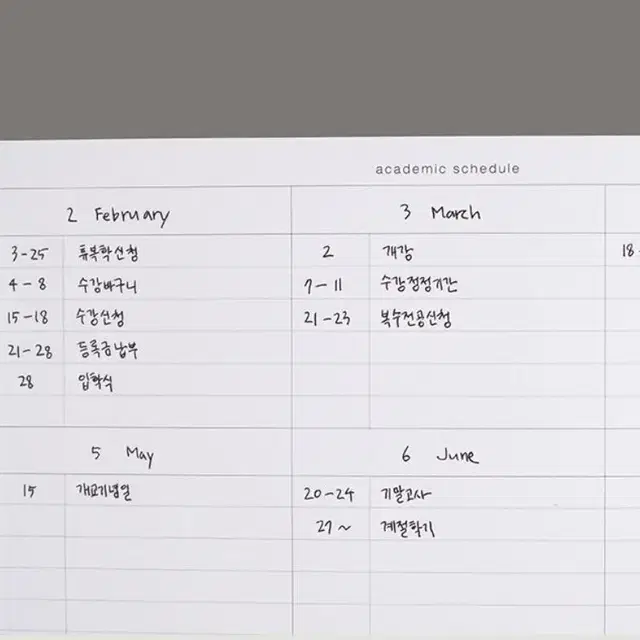 academic schedule
2 February
3-25 휴복학신청
4-8 수강바구니
15-18 수강신청
21-28 등록금납부
28 입학식
3 March
2 개강
7-11 수강정정기간
21-23 복수전공신청
18-
5 May
15 개교기념일
6 June
20-24 기말고사
27~ 계절학기